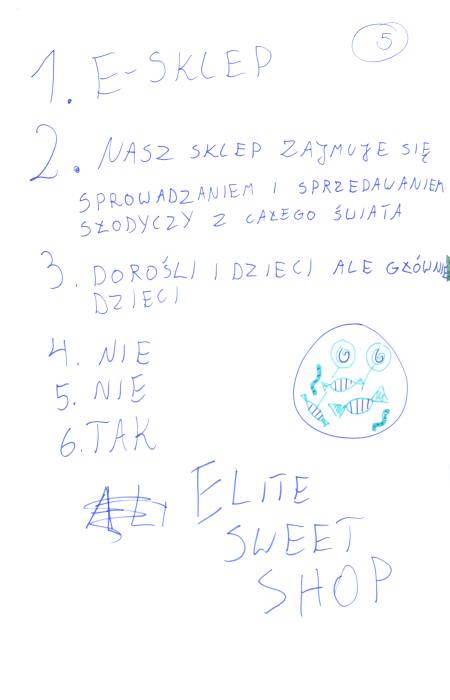 5
1. E-SKLEP
2. NASZ SKLEP ZAJMUJE SIĘ
SPROWADZANIEM I SPRZEDAWANIEM
SŁODYCZY Z CAŁEGO ŚWIATA
3. DOROŚLI I DZIECI ALE GŁÓWNIE
DZIECI
4. NIE
5. NIE
6. TAK
ELITE
SWEET
SHOP